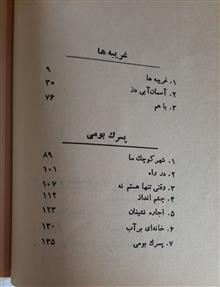 غریبه ها
۱. غریبه ها ۹
۲. آسمان آبی دز ۳۰
۳. با هم ۷۶
پسرك بومی
۱. شهر کوچك ما ۸۹
۲. در راه ۱۰۱
۳. وقتی تنها هستم نه ۱۰۷
۴. چشم انداز ۱۱۲
۵. اجاره نشینان ۱۲۳
۶. خانه‌ای بر آب ۱۳۰
۷. پسرك بومی ۱۳۵